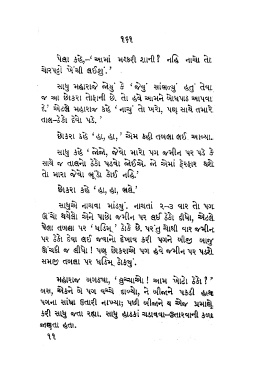 ૧૬૧
પેલા કહે,-'આમાં મશ્કરી શાની? નહિ નાચો તો
ચોરપટ્ટો ખેંચી લઈશું.'
સાધુ મહારાજે જોયું કે 'જેવું' સાંભળ્યું હતું તેવા
જ આ છોકરા તોફાની છે. તો હવે આમને બોધપાઠ આપવા
દે.' એટલે મહારાજ કહે 'નાચું તો ખરો, પણ સાથે તમારે
તાલ-ઠેકો દેવો પડે.'
છોકરા કહે 'હા, હા,' એમ કહી તબલા લઈ આવ્યા.
સાધુ કહે 'જોજો, જેવો મારો પગ જમીન પર પડે કે
સાથે જ તાલનો ઠેકો પડવો જોઈએ. જો એમાં ફેરફાર થશે
તો મારા જેવો ભૂંડો કોઈ નહિ.'
છોકરા કહે 'હા, હા, ભલે.'
સાધુએ નાચવા માંડ્યું. નાચતાં ૨-૩ વાર તો પગ
ઊંચો થયેલો એને પાછો જમીન પર લઈ ઠેકો દીધો, એટલે
પેલા તબલા પર 'ધડિમ્' ઠોકે છે. પરંતુ ચોથી વાર જમીન
પર ઠેકો દેવા લઈ જવાનો દેખાવ કરી પગને બીજી બાજુ
ઊંચકી જ લીધો! પણ છોકરાએ પગ હવે જમીન પર પડશે
સમજી તબલા પર ધડિમ્ ઠોક્યું.
મહારાજ બગડ્યા, 'લુચ્ચાઓ! આમ ખોટો ઠેકો?'
બસ, એકને બે પગ વચ્ચે દાબ્યો, ને બીજાને પકડી હાથ
પગના સાંધા ઉતારી નાખ્યા; પછી બીજાને ય એજ પ્રમાણે
કરી સાધુ જતા રહ્યા. સાધુ હાડકાં ચડાવવા-ઉતારવાની કળા
જાણતા હતા.
૧૧